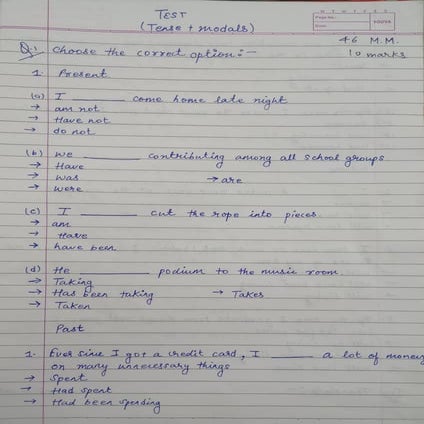 TEST
(Tense + modals)
YOUVA
46 M.M.
Q.1 Choose the correct option:-
10 marks
1. Present
(a) I ______ come home late night
→ am not
→ Have not
→ do not
(b) We ______ contributing among all school groups
→ Have
→ was → are
→ were
(c) I ______ cut the rope into pieces.
→ am
→ Have
→ have been
(d) He ______ podium to the music room.
→ Taking
→ Has been taking → Takes
→ Taken
Past
1. Ever since I got a credit card, I ______ a lot of money
on many unnecessary things
→ Spent
→ Had spent
→ Had been spending